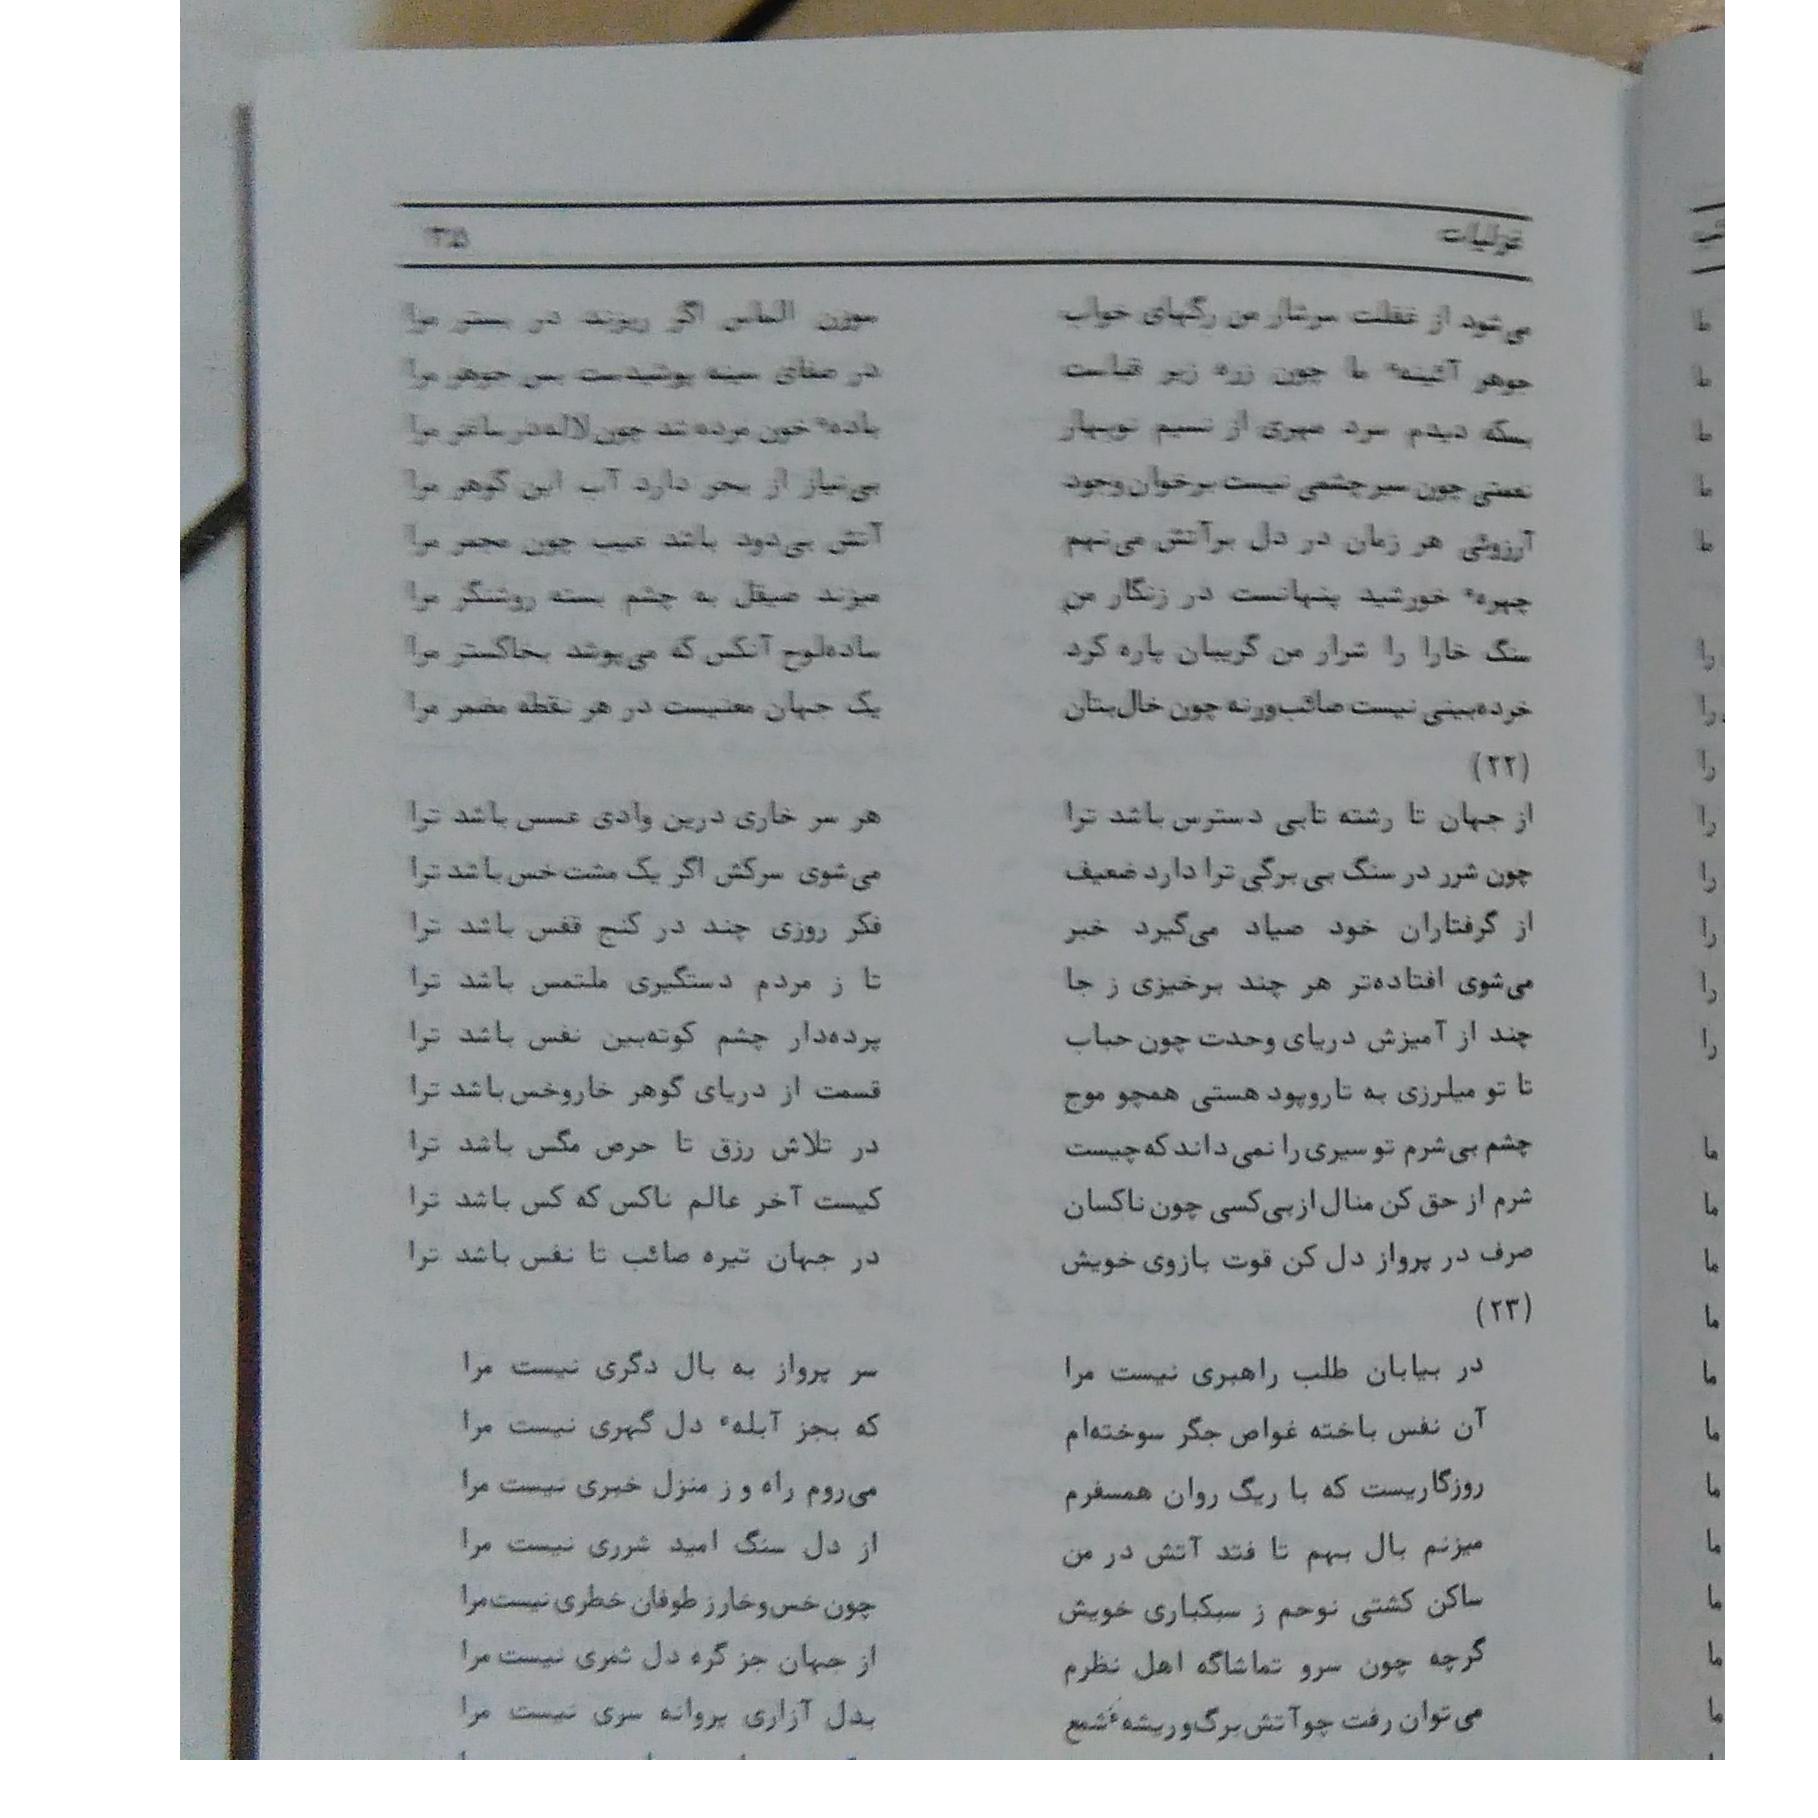 غزلیات
می‌شود از غفلت سرشار من رگهای خواب سوزن الماس اگر ریزند در بستر مرا
جوهر آئینهٔ ما چون زره زیر قباست در صفای سینه پوشیدست بس جوهر مرا
بسکه دیدم سرد مهری از نسیم نوبهار بادهٔ خون مرده شد چون لاله در ساغر مرا
نعمتی چون سیرچشمی نیست برخوان وجود بی‌نیاز از بحر دارد آب این گوهر مرا
آرزوئی هر زمان در دل برآتش می‌نهم آتش بی‌دود باشد عیب چون مجمر مرا
چهرهٔ خورشید پنهانست در زنگار من میزند صیقل به چشم بسته روشنگر مرا
سنگ خارا را شرار من گریبان پاره کرد ساده‌لوح آنکس که می‌پوشد بخاکستر مرا
خرده‌بینی نیست صائب ورنه چون خال بتان یک جهان معنیست در هر نقطه مضمر مرا
(۲۲)
از جهان تا رشته تابی دسترس باشد ترا هر سر خاری درین وادی عسس باشد ترا
چون شرر در سنگ بی برگی ترا دارد ضعیف می‌شوی سرکش اگر یک مشت خس باشد ترا
از گرفتاران خود صیاد می‌گیرد خبر فکر روزی چند در کنج قفس باشد ترا
می‌شوی افتاده‌تر هر چند برخیزی ز جا تا ز مردم دستگیری ملتمس باشد ترا
چند از آمیزش دریای وحدت چون حباب پرده‌دار چشم کوته‌بین نفس باشد ترا
تا تو میلرزی به تاروپود هستی همچو موج قسمت از دریای گوهر خاروخس باشد ترا
چشم بی‌شرم تو سیری را نمی‌داند که چیست در تلاش رزق تا حرص مگس باشد ترا
شرم از حق کن منال از بی‌کسی چون ناکسان کیست آخر عالم ناکس که کس باشد ترا
صرف در پرواز دل کن قوت بازوی خویش در جهان تیره صائب تا نفس باشد ترا
(۲۳)
در بیابان طلب راهبری نیست مرا سر پرواز به بال دگری نیست مرا
آن نفس باخته غواص جگر سوخته‌ام که بجز آبلهٔ دل گهری نیست مرا
روزگاریست که با ریگ روان همسفرم می‌روم راه و ز منزل خبری نیست مرا
میزنم بال بهم تا فتد آتش در من از دل سنگ امید شرری نیست مرا
ساکن کشتی نوحم ز سبکباری خویش چون خس و خار ز طوفان خطری نیست مرا
گرچه چون سرو تماشاگه اهل نظرم از جهان جز گره دل ثمری نیست مرا
می‌توان رفت چو آتش برگ و ریشهٔ شمع بدل آزاری پروانه سری نیست مرا